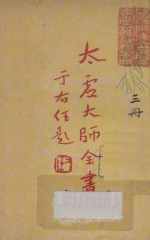 太虛大師全書
于右任題
三冊